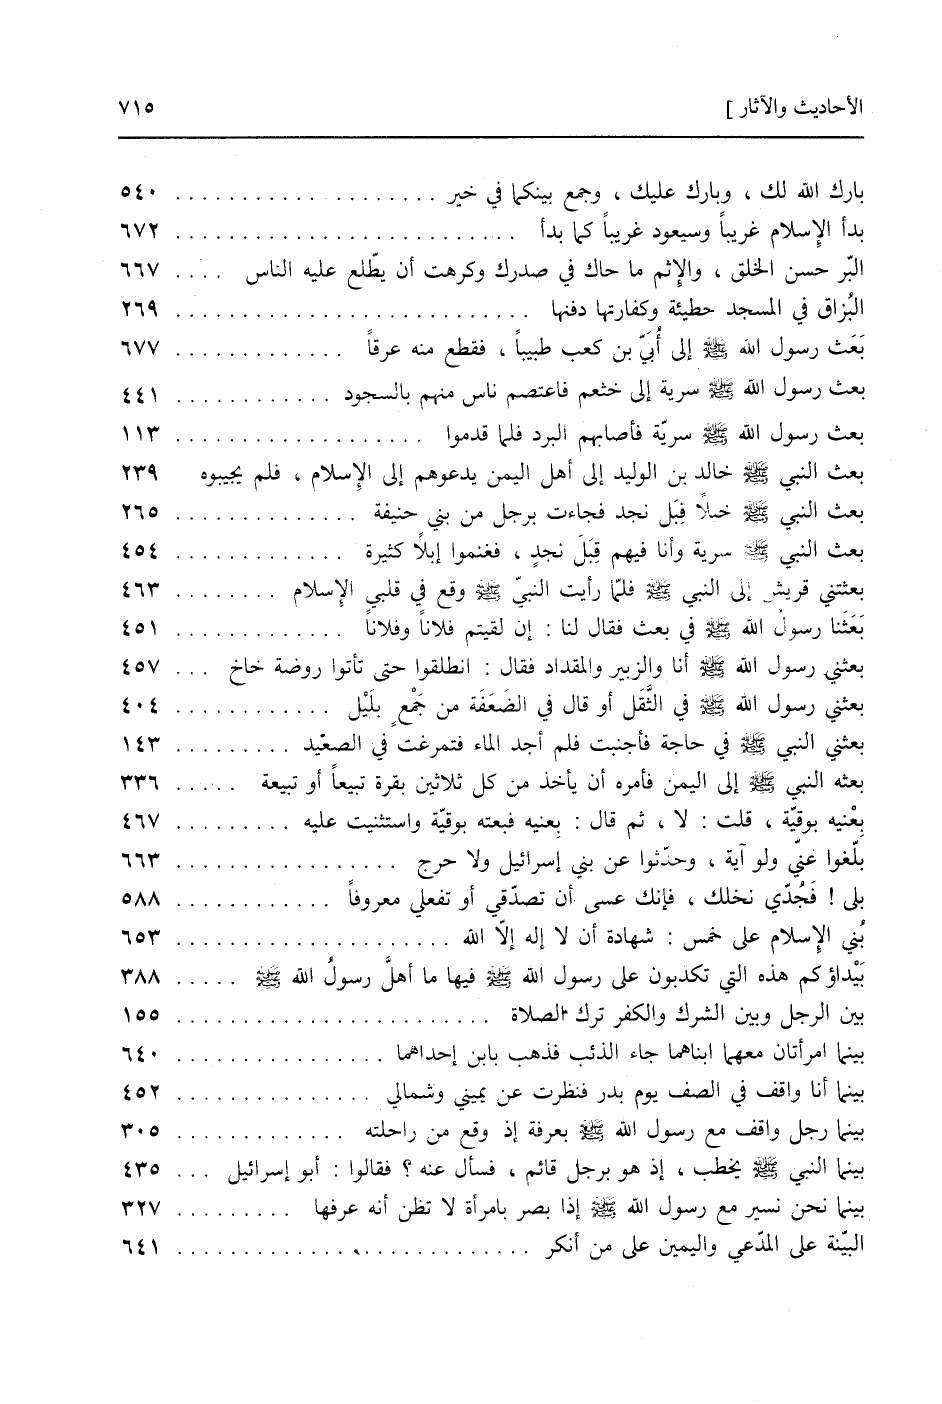 الأحاديث والآثار ] ٧١٥
بارك الله لك ، وبارك عليك ، وجمع بينكما في خير ........................ ٥٤٠
بدأ الإسلام غريباً وسيعود غريباً كما بدأ .......................... ٦٧٢
البّر حسن الخلق ، والإثم ما حاك في صدرك وكرهت أن يطّلع عليه الناس .... ٦٦٧
البُزاق في المسجد خطيئة وكفارتها دفنها ........................... ٢٦٩
بَعَث رسول الله ﷺ إلى أُبَيّ بن كعب طبيباً ، فقطع منه عرقاً ............. ٦٧٧
بعث رسول الله ﷺ سرية إلى خثعم فاعتصم ناس منهم بالسجود ............ ٤٤١
بعث رسول الله ﷺ سريّة فأصابهم البرد فلما قدموا ................... ١١٣
بعث النبي ﷺ خالد بن الوليد إلى أهل اليمن يدعوهم إلى الإسلام ، فلم يجيبوه ٢٣٩
بعث النبي ﷺ خيلاً قِبَل نجد فجاءت برجل من بني حنيفة .............. ٢٦٥
بعث النبي ﷺ سرية وأنا فيهم قِبَلَ نجدٍ ، فغنموا إبلاً كثيرة ............. ٤٥٤
بعثتني قريش إلى النبي ﷺ فلمّا رأيت النبيّ ﷺ وقع في قلبي الإسلام ........ ٤٦٣
بَعَثَنا رسولُ الله ﷺ في بعث فقال لنا : إن لقيتم فلاناً وفلاناً ............. ٤٥١
بعثني رسول الله ﷺ أنا والزبير والمقداد فقال : انطلقوا حتى تأتوا روضة خاخ ... ٤٥٧
بعثني رسول الله ﷺ في الثَّقَل أو قال في الضَعَفَة من جَمْعٍ بلَيْل ............ ٤٠٤
بعثني النبي ﷺ في حاجة فأجنبت فلم أجد الماء فتمرغت في الصعيد ......... ١٤٣
بعثه النبي ﷺ إلى اليمن فأمره أن يأخذ من كل ثلاثين بقرة تبيعاً أو تبيعة ..... ٣٣٦
بِعْنيه بوقيّة ، قلت : لا ، ثم قال : بِعنيه فبعته بوقيّة واستثنيت عليه ......... ٤٦٧
بلّغوا عنّي ولو آية ، وحدّثوا عن بني إسرائيل ولا حرج ................. ٦٦٣
بلى ! فَجُدّي نخلك ، فإنك عسى أن تصدّقي أو تفعلي معروفاً ............ ٥٨٨
بُني الإسلام على خمس : شهادة أن لا إله إلّا الله ..................... ٦٥٣
بَيْداؤكم هذه التي تكذبون على رسول الله ﷺ فيها ما أهلَّ رسولُ الله ﷺ ..... ٣٨٨
بين الرجل وبين الشرك والكفر ترك الصلاة ........................ ١٥٥
بينما امرأتان معهما ابناهما جاء الذئب فذهب بابن إحداهما ................ ٦٤٠
بينما أنا واقف في الصف يوم بدر فنظرت عن يميني وشمالي ............... ٤٥٢
بينما رجل واقف مع رسول الله ﷺ بعرفة إذ وقع من راحلته ............. ٣٠٥
بينما النبي ﷺ يخطب ، إذ هو برجل قائم ، فسأل عنه ؟ فقالوا : أبو إسرائيل ... ٤٣٥
بينما نحن نسير مع رسول الله ﷺ إذا بصر بامرأة لا تظن أنه عرفها ......... ٣٢٧
البيّنة على المدّعي واليمين على من أنكر ........................... ٦٤١